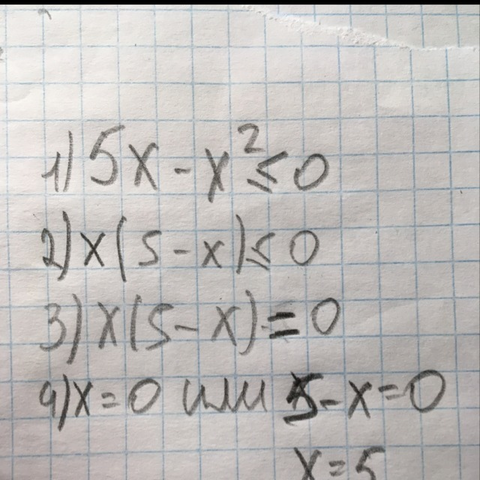 1) 5x - x² ≤ 0
2) x(5 - x) ≤ 0
3) x(5 - x) = 0
4) x = 0 или 5 - x = 0
x = 5